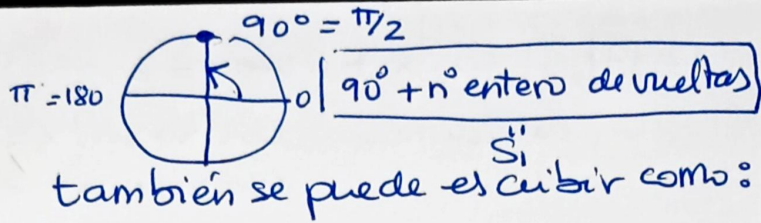 90° = π/2
π = 180
0
90° + nº entero de vueltas
Sí
también se puede escribir como: